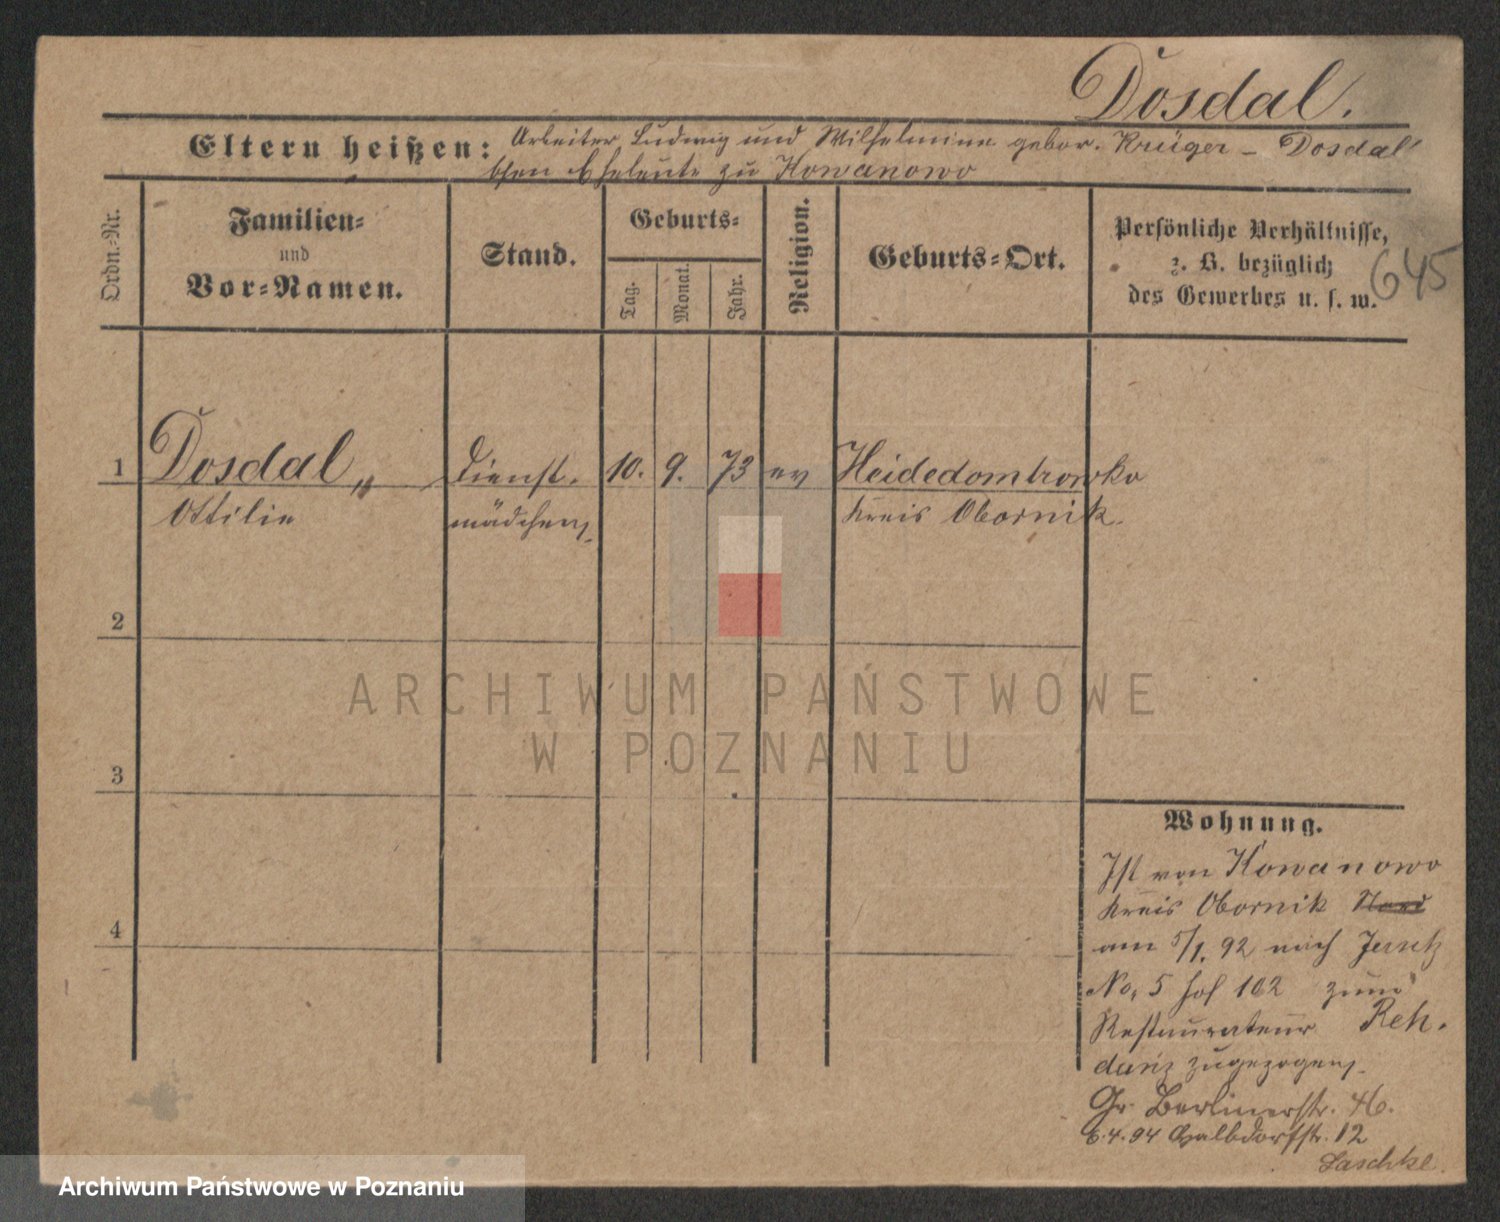 Dosdal.
Eltern heißen: Arbeiter Ludwig und Wilhelmine gebor. Krüger - Dosdal'
schen Eheleute zu Kowanowo
Ordn.-Nr.
Familien-
und
Vor-Namen.
Stand.
Geburts-
Tag.
Monat.
Jahr.
Religion.
Geburts-Ort.
Persönliche Verhältnisse,
z. B. bezüglich
des Gewerbes u. s. w.
645
1 Dosdal, Dienst- 10. 9. 73 ev Heidedombrowko
Ottilie mädchen, Kreis Obornik.
2
3
4
ARCHIWUM PAŃSTWOWE
W POZNANIU
Wohnung.
Ist von Kowanowo
Kreis Obornik
am 5/1. 92 nach Jersitz
No. 5 Hof 102 zum
Restaurateur Reh.
danz zugezogen.
Gr. Berlinerstr. 46.
6.4.94 Halbdorfstr. 12
Laschke.
Archiwum Państwowe w Poznaniu